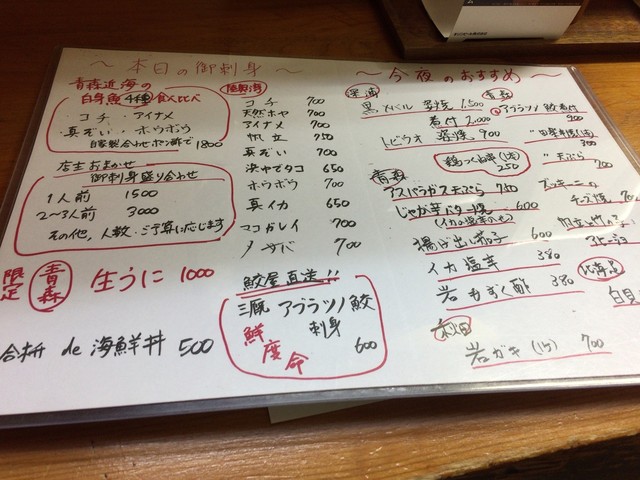 〜本日の御刺身〜
青森近海の
白身魚4種食べ比べ
・コチ ・アイナメ
・真ぞい ・ホウボウ
自家製合わせポン酢で1800
店主おまかせ
御刺身盛り合わせ
1人前 1500
2〜3人前 3000
その他、人数・ご予算に応じます
限定
青森
生うに 1000
de 海鮮丼 500
コチ 700
天然ホヤ 700
アイナメ 700
帆立 750
真ぞい 700
炙やでタコ 650
ホウボウ 700
真イカ 650
マコガレイ 700
700
鮫屋直送!!
三厩 アブラツノ鮫
刺身
鮮度命
600
〜今夜のおすすめ〜
黒メバル 塩焼 1,500
煮付 2,000
トビウオ 塩焼 900
鶏つくね串(1本)
250
青森
アスパラガス天ぷら 700
じゃが芋バター焼 600
(イカの塩辛のせ)
揚げ出し茄子 600
イカ塩辛 380
岩もずく酢 380
秋田
岩ガキ(1ケ) 700
青森
アブラツノ鮫煮付
900
〃 天ぷら
700
ズッキーニの
チーズ焼 700
北海道